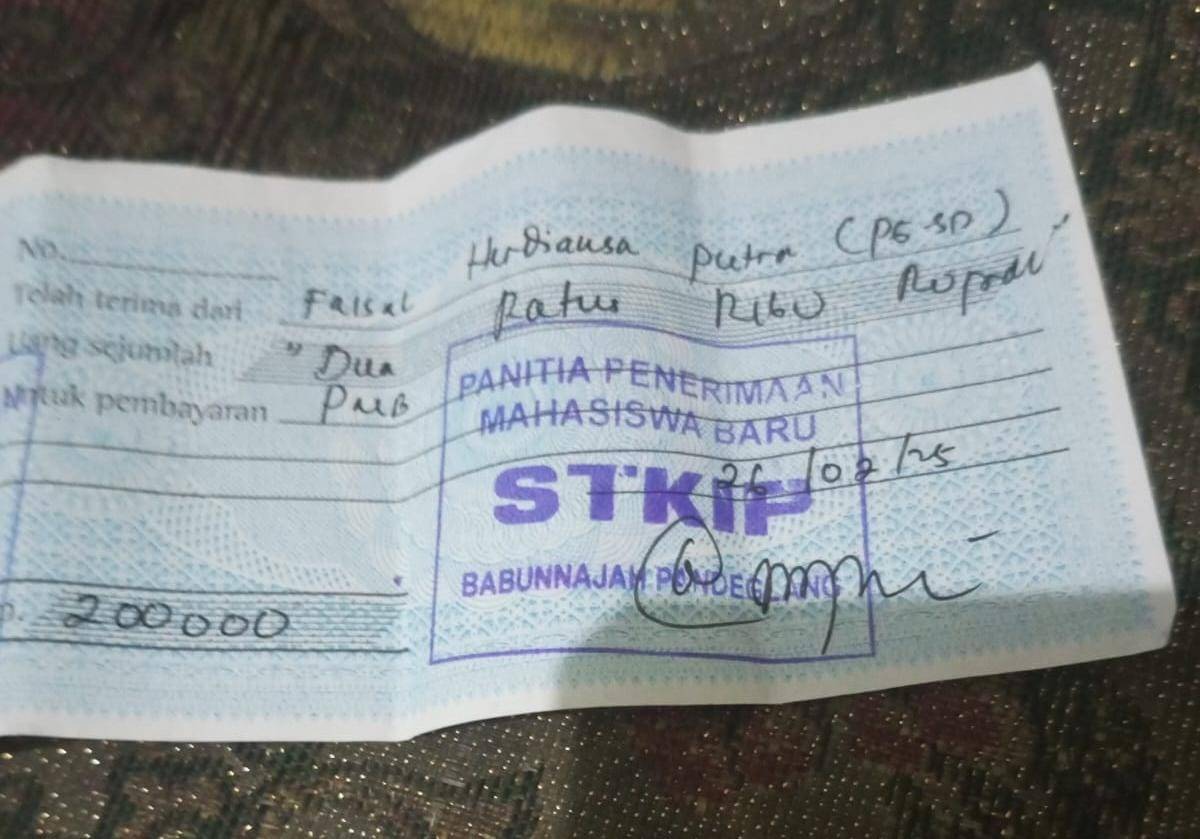 No.
Telah terima dari Faisal Herdiansa putra (PG-SD)
Uang sejumlah " Dua Ratus Ribu Rupiah "
Untuk pembayaran PMB
PANITIA PENERIMAAN
MAHASISWA BARU
STKIP
26/02/25
BABUNNAJAH PANDEGLANG
p. 200000